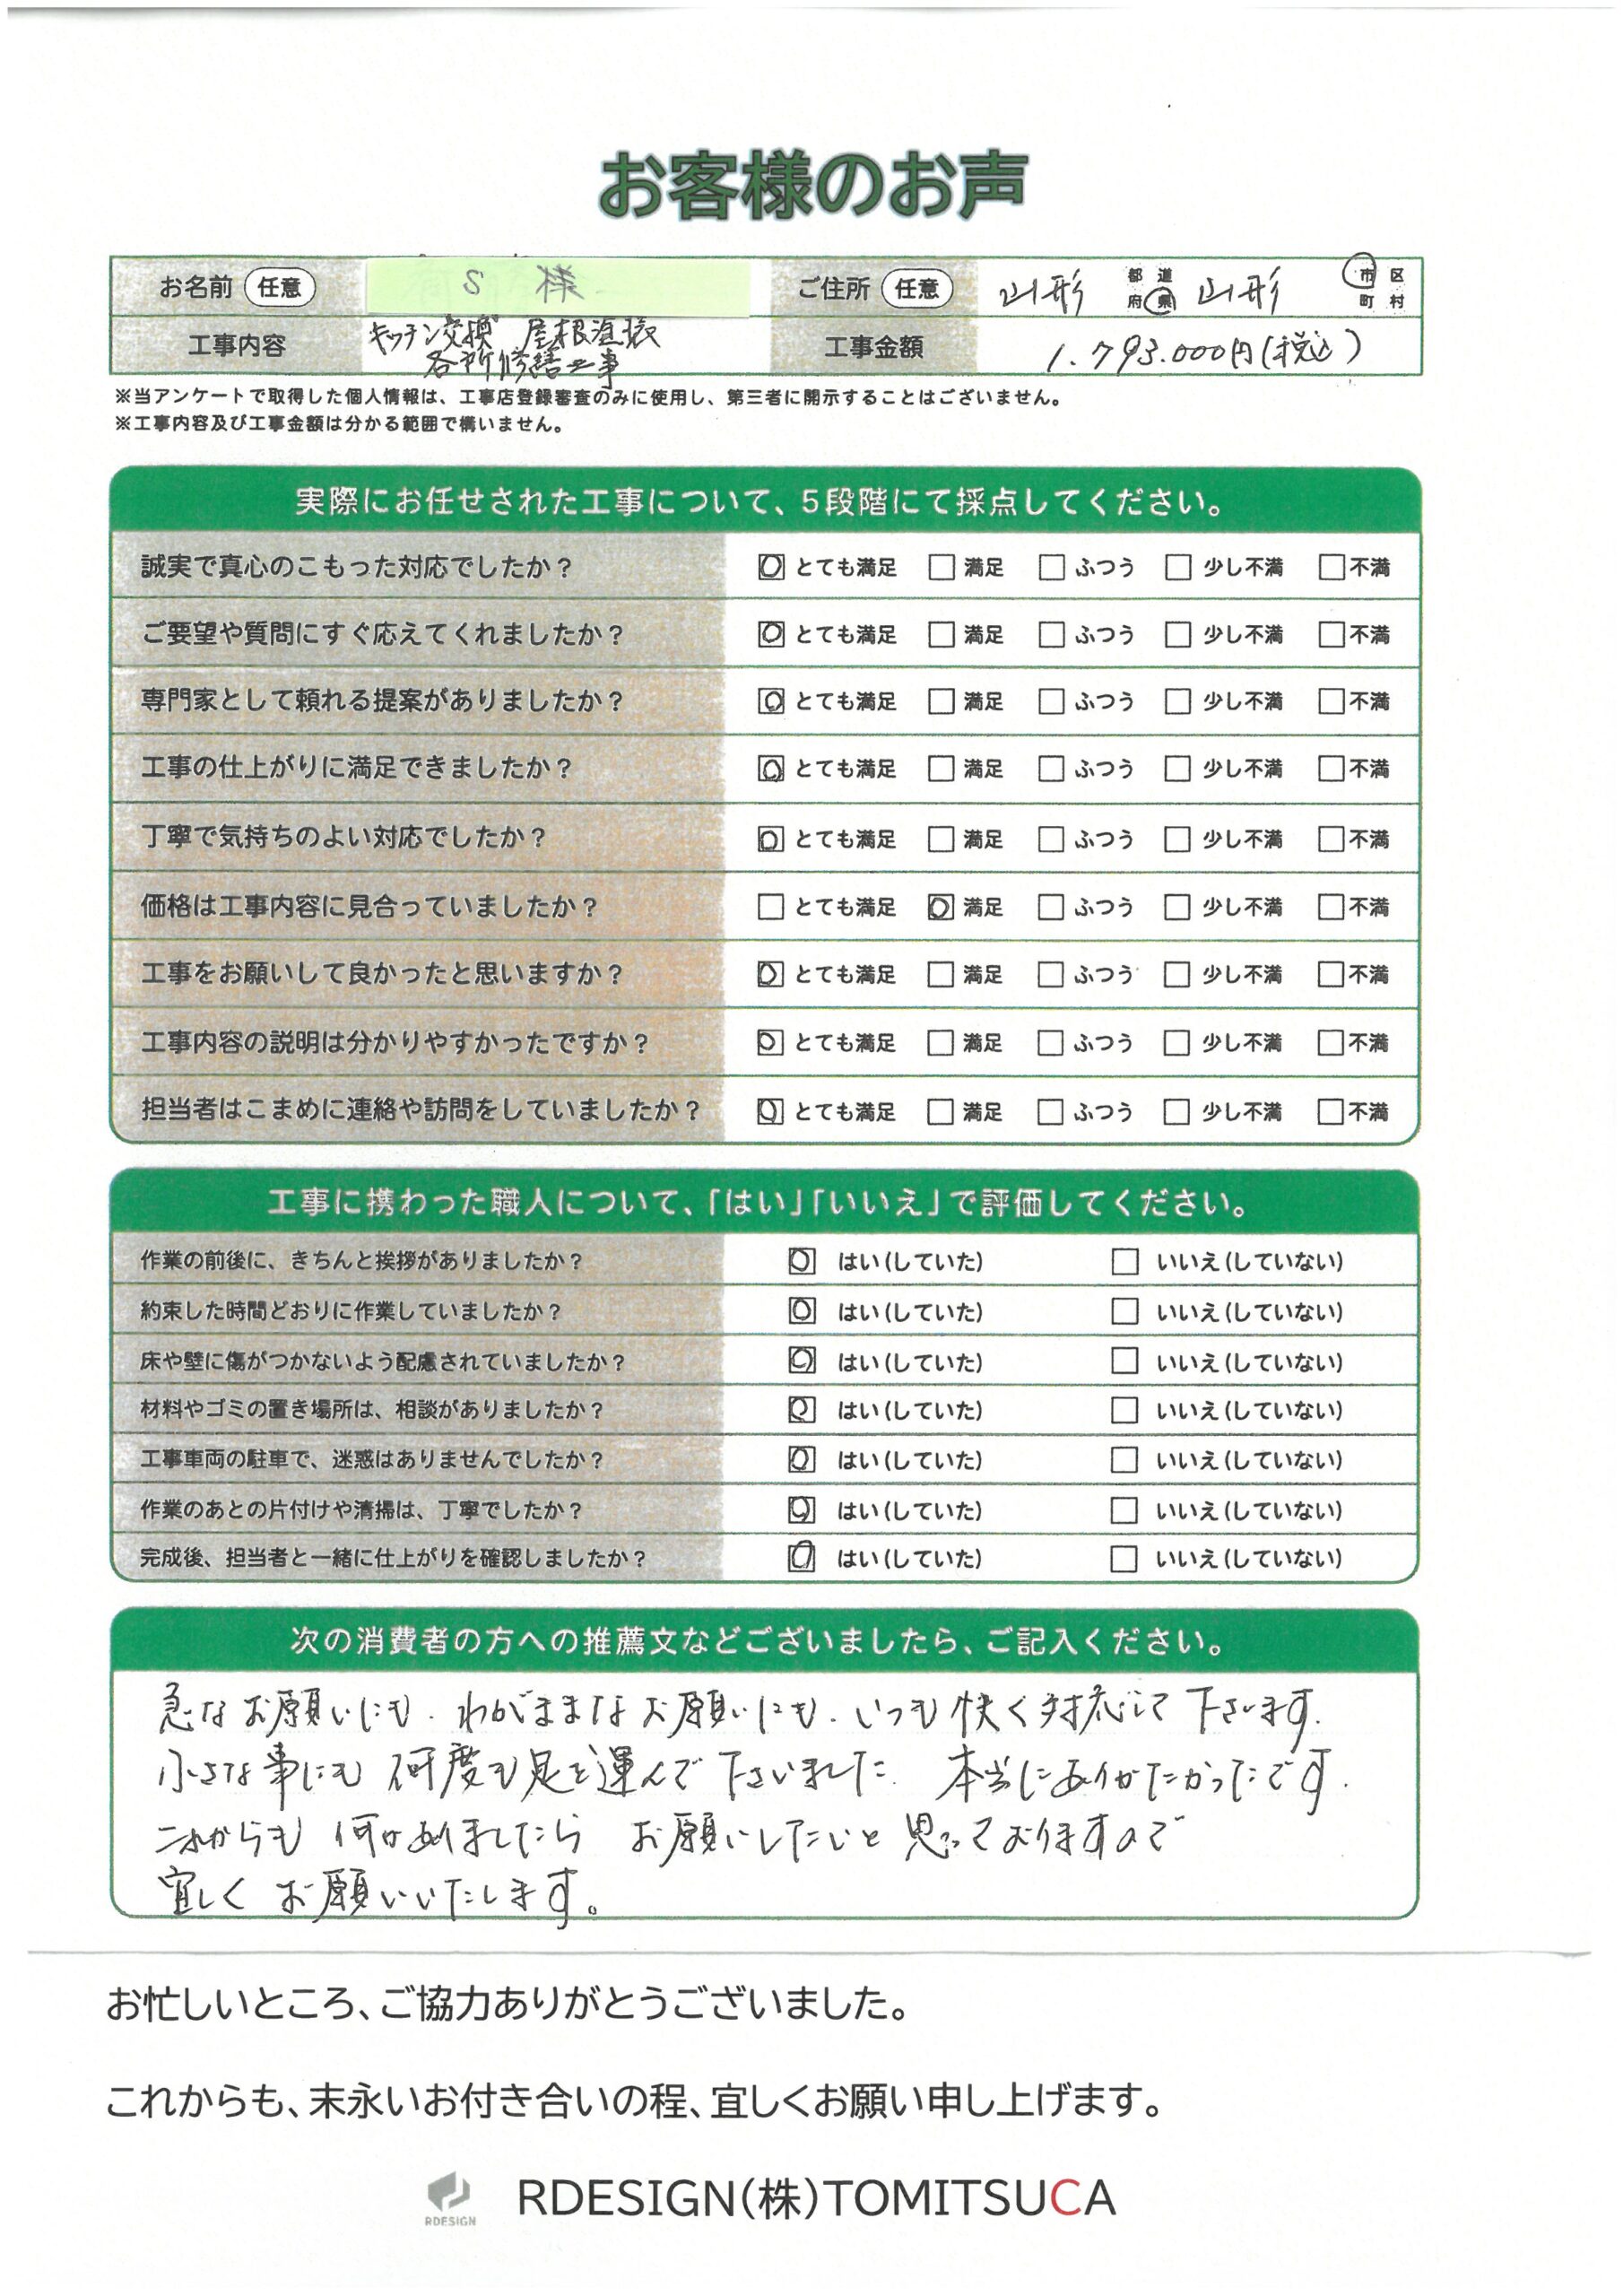 お客様のお声
お名前 任意 S 様 ご住所 任意 山形 都道府県 山形 市区町村
工事内容 キッチン交換 屋根塗装 工事金額 1.793.000円(税込)
各所修繕工事
※当アンケートで取得した個人情報は、工事店登録審査のみに使用し、第三者に開示することはございません。
※工事内容及び工事金額は分かる範囲で構いません。
実際にお任せされた工事について、5段階にて採点してください。
誠実で真心のこもった対応でしたか？ とても満足 満足 ふつう 少し不満 不満
ご要望や質問にすぐ応えてくれましたか？ とても満足 満足 ふつう 少し不満 不満
専門家として頼れる提案がありましたか？ とても満足 満足 ふつう 少し不満 不満
工事の仕上がりに満足できましたか？ とても満足 満足 ふつう 少し不満 不満
丁寧で気持ちのよい対応でしたか？ とても満足 満足 ふつう 少し不満 不満
価格は工事内容に見合っていましたか？ とても満足 満足 ふつう 少し不満 不満
工事をお願いして良かったと思いますか？ とても満足 満足 ふつう 少し不満 不満
工事内容の説明は分かりやすかったですか？ とても満足 満足 ふつう 少し不満 不満
担当者はこまめに連絡や訪問をしていましたか？ とても満足 満足 ふつう 少し不満 不満
工事に携わった職人について、「はい」「いいえ」で評価してください。
作業の前後に、きちんと挨拶がありましたか？ はい(していた) いいえ(していない)
約束した時間どおりに作業していましたか？ はい(していた) いいえ(していない)
床や壁に傷がつかないよう配慮されていましたか？ はい(していた) いいえ(していない)
材料やゴミの置き場所は、相談がありましたか？ はい(していた) いいえ(していない)
工事車両の駐車で、迷惑はありませんでしたか？ はい(していた) いいえ(していない)
作業のあとの片付けや清掃は、丁寧でしたか？ はい(していた) いいえ(していない)
完成後、担当者と一緒に仕上がりを確認しましたか？ はい(していた) いいえ(していない)
次の消費者の方への推薦文などございましたら、ご記入ください。
急なお願いにも、わがままなお願いにも、いつも快く対応して下さいます。
小さな事にも 何度も足を運んで下さいました。 本当にありがたかったです。
これからも 何かありましたら お願いしたいと思っておりますので
宜しくお願いいたします。
お忙しいところ、ご協力ありがとうございました。
これからも、末永いお付き合いの程、宜しくお願い申し上げます。
RDESIGN RDESIGN(株)TOMITSUCA